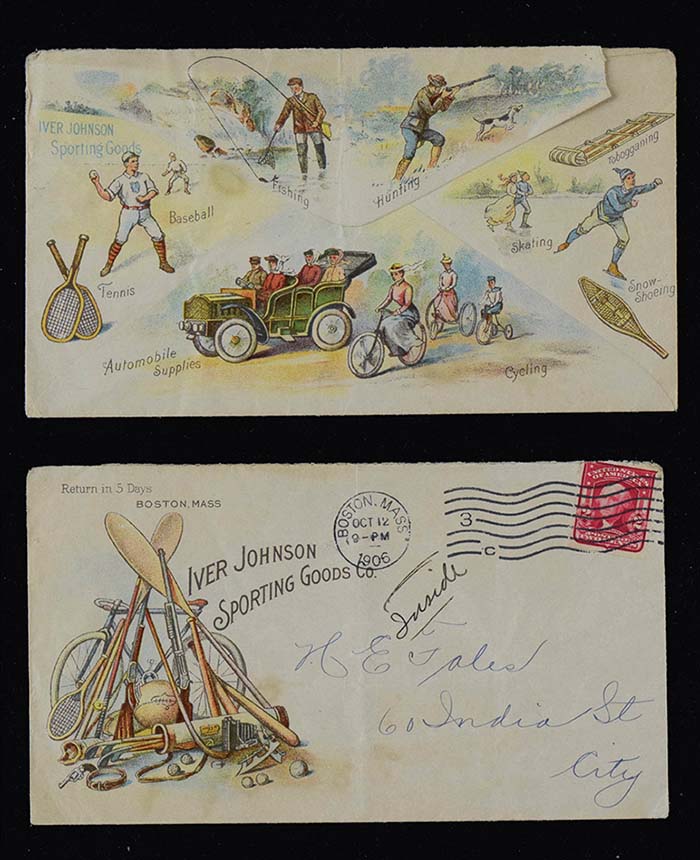 IVER JOHNSON
Sporting Goods
Fishing
Hunting
Tobogganing
Baseball
Skating
Tennis
Snow-
Shoeing
Automobile
Supplies
Cycling
Return in 5 Days
BOSTON, MASS
IVER JOHNSON
SPORTING GOODS CO.
BOSTON, MASS.
OCT 12
9-PM
1906
3
C
UNITED STATES
OF AMERICA
Inside
H E Fales
60 India St
City